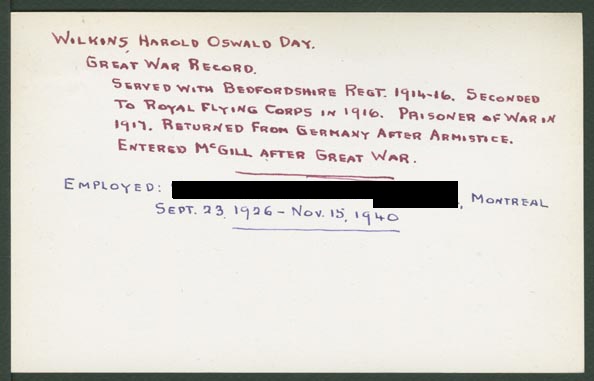 WILKINS, HAROLD OSWALD DAY.
GREAT WAR RECORD.
SERVED WITH BEDFORDSHIRE REGT. 1914-16. SECONDED
TO ROYAL FLYING CORPS IN 1916. PRISONER OF WAR IN
1917. RETURNED FROM GERMANY AFTER ARMISTICE.
ENTERED McGILL AFTER GREAT WAR.
EMPLOYED: , MONTREAL
SEPT. 23, 1926 - NOV. 15, 1940